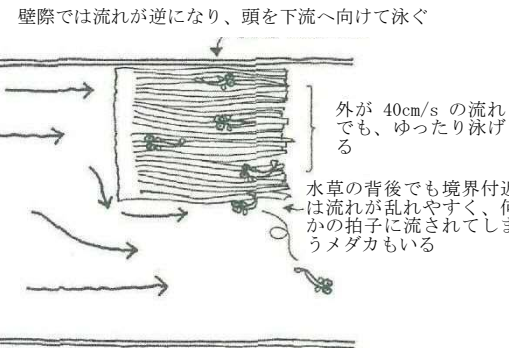 壁際では流れが逆になり、頭を下流へ向けて泳ぐ
外が 40cm/s の流れ
でも、ゆったり泳げ
る
水草の背後でも境界付近
は流れが乱れやすく、何
かの拍子に流されてしま
うメダカもいる